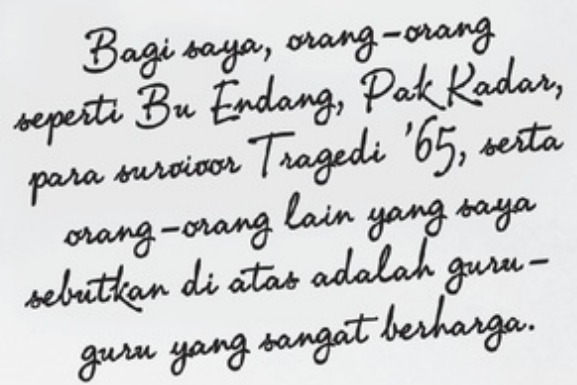 Bagi saya, orang-orang
seperti Bu Endang, Pak Kadar,
para survivor Tragedi '65, serta
orang-orang lain yang saya
sebutkan di atas adalah guru-
guru yang sangat berharga.